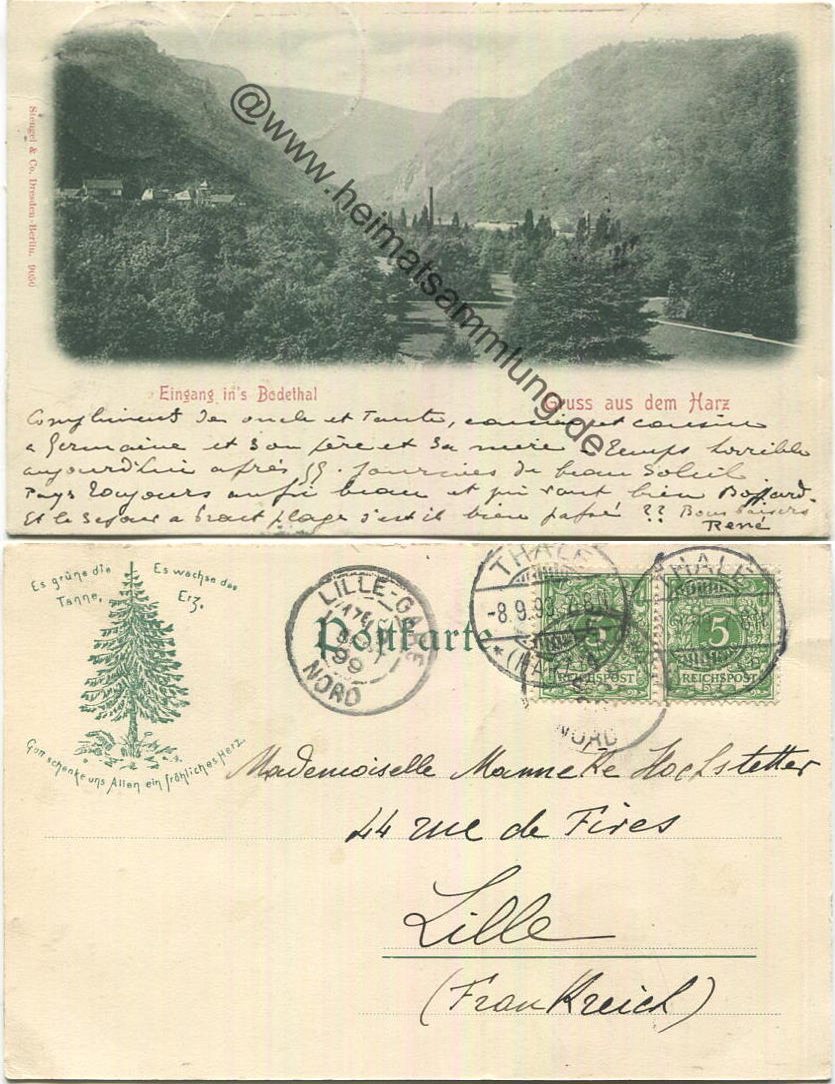 Stengel & Co. Dresden-Berlin. 9050
@www.heimatsammlung.de
Eingang in's Bodethal
Gruss aus dem Harz
Compliment de oncle et Tante, cousine et cousin
a Germaine et son père et sa mère Temps horrible
aujourd'hui après journées de beau soleil.
Pays toujours aussi beau et qui vaut bien
Et le séjour a plage s'est il bien passé ?? Bons baisers
René
Es grüne die Tanne,
Es wachse das Erz,
Gott schenke uns Allen ein fröhliches Herz.
Postkarte
LILLE-GARE
99
NORD
THALE
-8.9.99. 4-8N
*(HARZ)
THALE
5
REICHSPOST
5
REICHSPOST
NORD
Mademoiselle Hochstetter
44 rue de
Lille
(Frankreich)